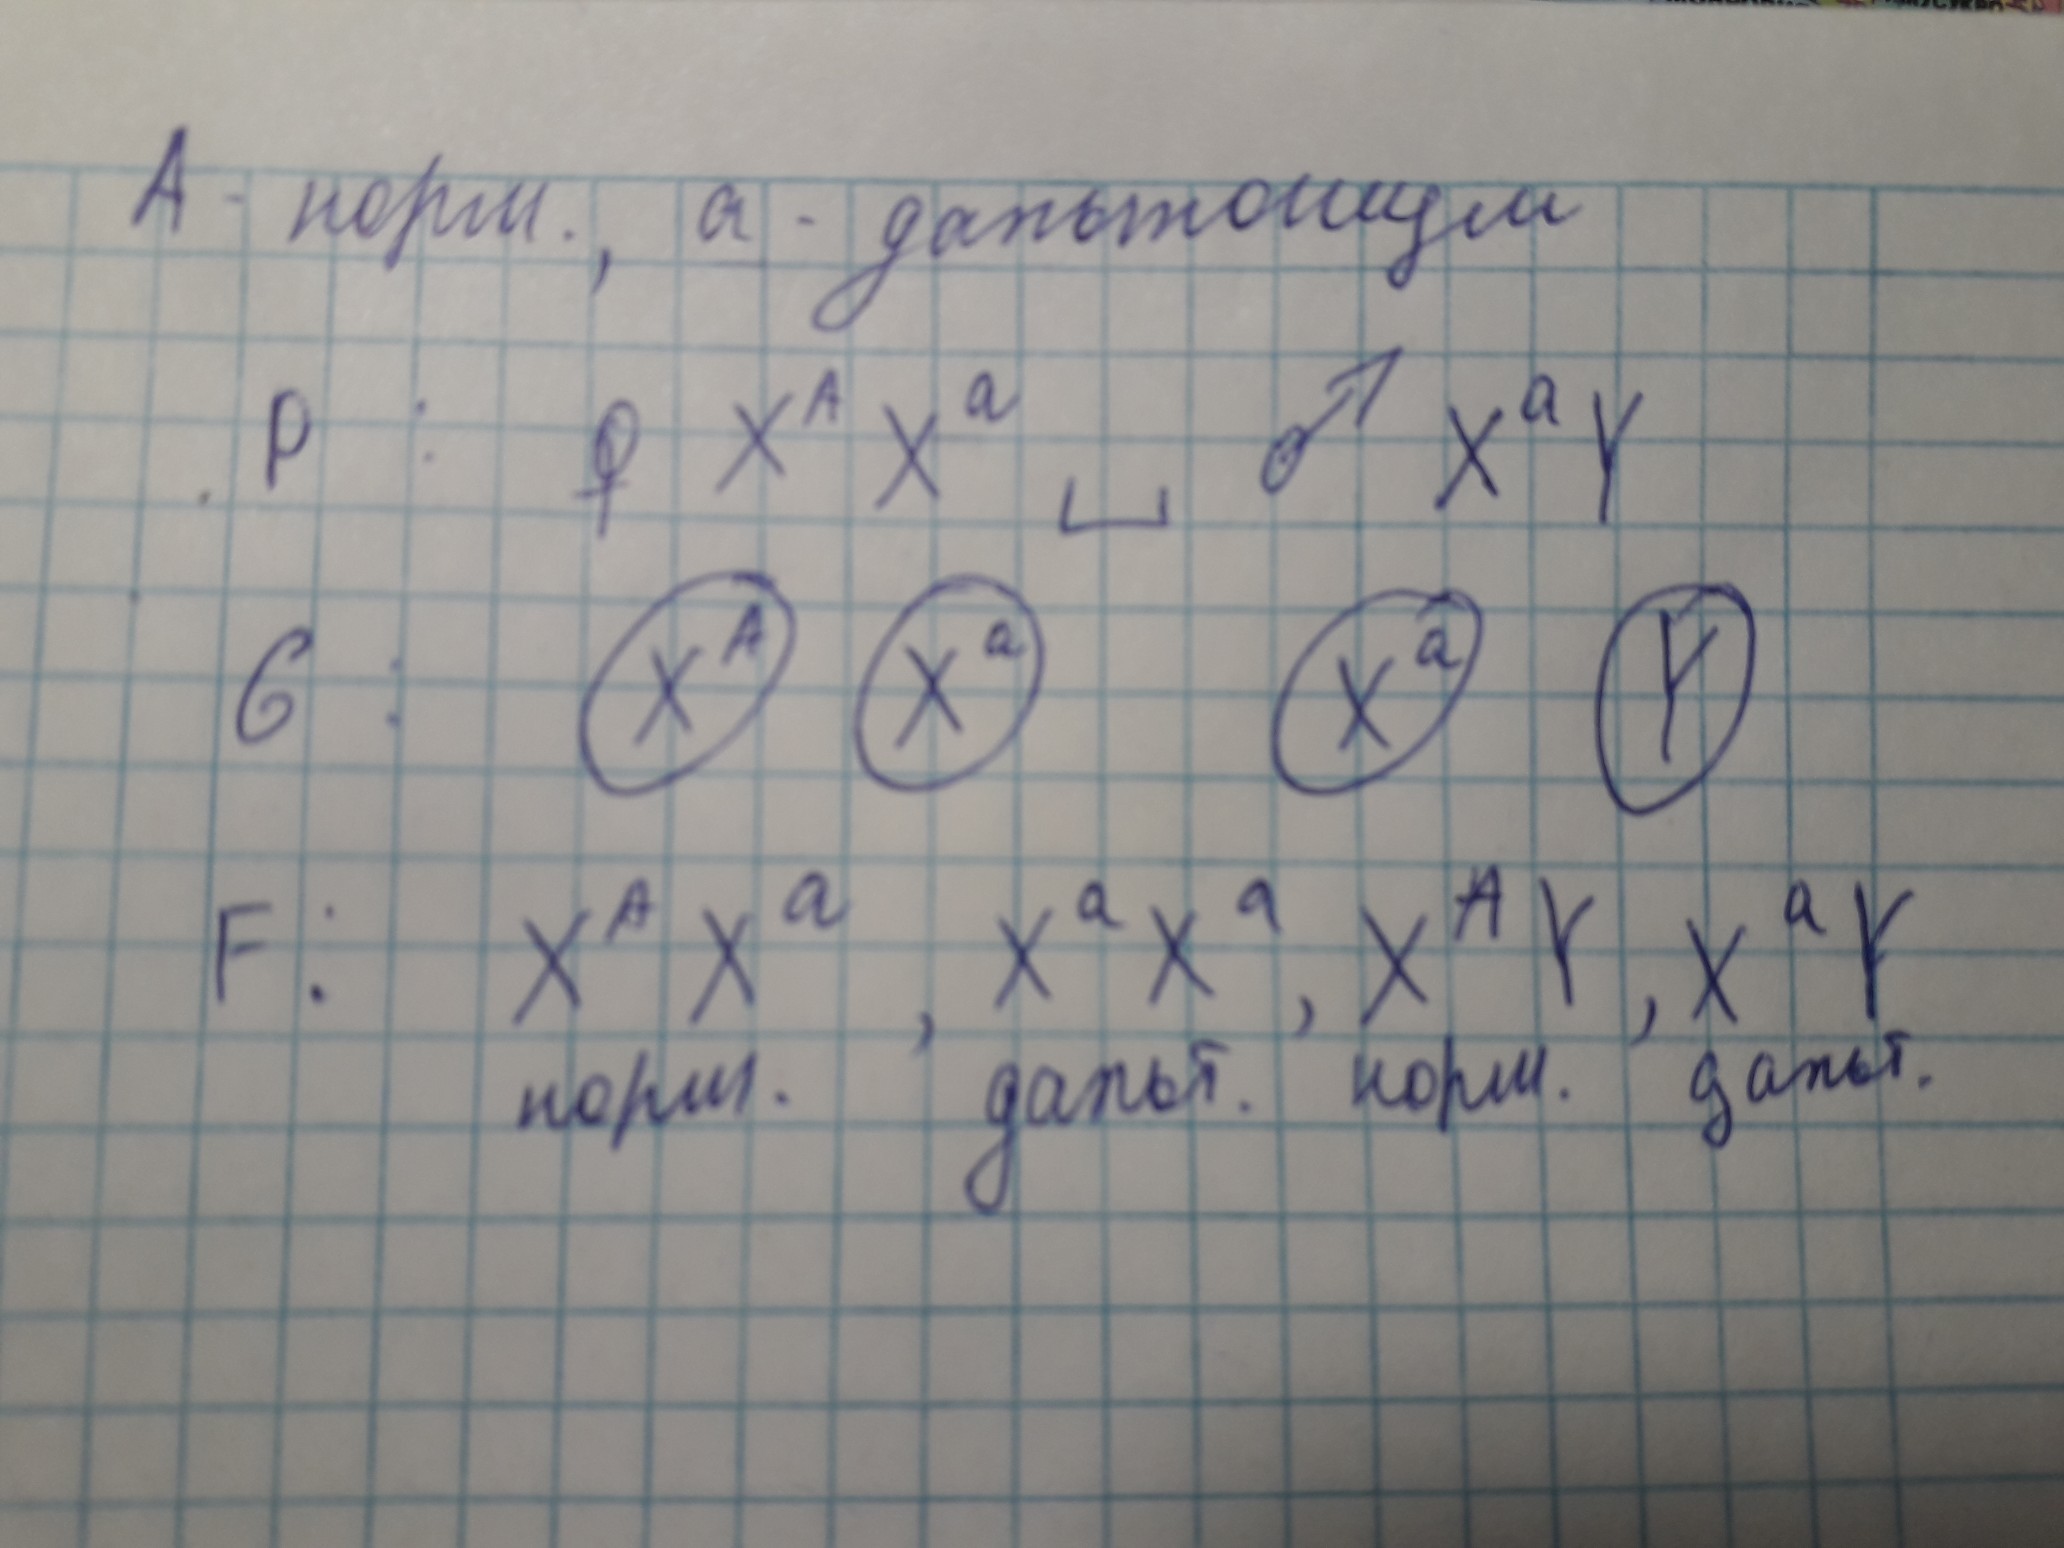 А - норм., а - дальтонизм
P : ♀ XᴬXᵃ ⨆ ♂ XᵃY
G : Xᴬ Xᵃ Xᵃ Y
F : XᴬXᵃ, XᵃXᵃ, XᴬY, XᵃY
норм. дальт. норм. дальт.